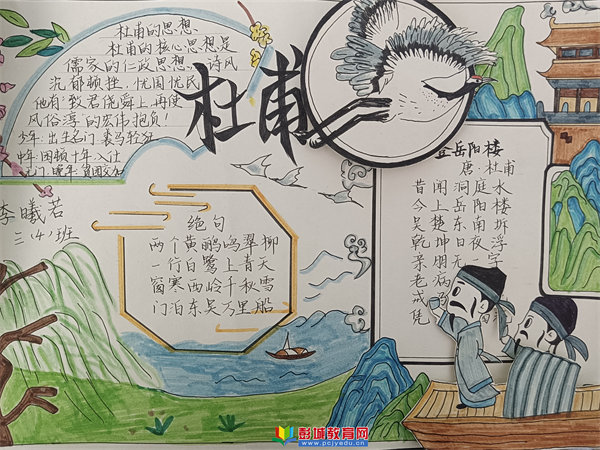 杜甫的思想
杜甫的核心思想是
儒家的仁政思想,诗风
沉郁顿挫,忧国忧民
他有"致君尧舜上,再使
风俗淳"的宏伟抱负!
少年:出生名门 裘马轻狂
中年:困顿十年 入仕
无门 晚年 贫困交加
杜甫
李曦若
三(4)班
绝句
两个黄鹂鸣翠柳
一行白鹭上青天
窗寒西岭千秋雪
门泊东吴万里船
登岳阳楼
唐:杜甫
昔闻洞庭水
今上岳阳楼
吴楚东南坼
乾坤日夜浮
亲朋无一字
老病
戎
凭
彭城教育网
www.pcjyedu.cn